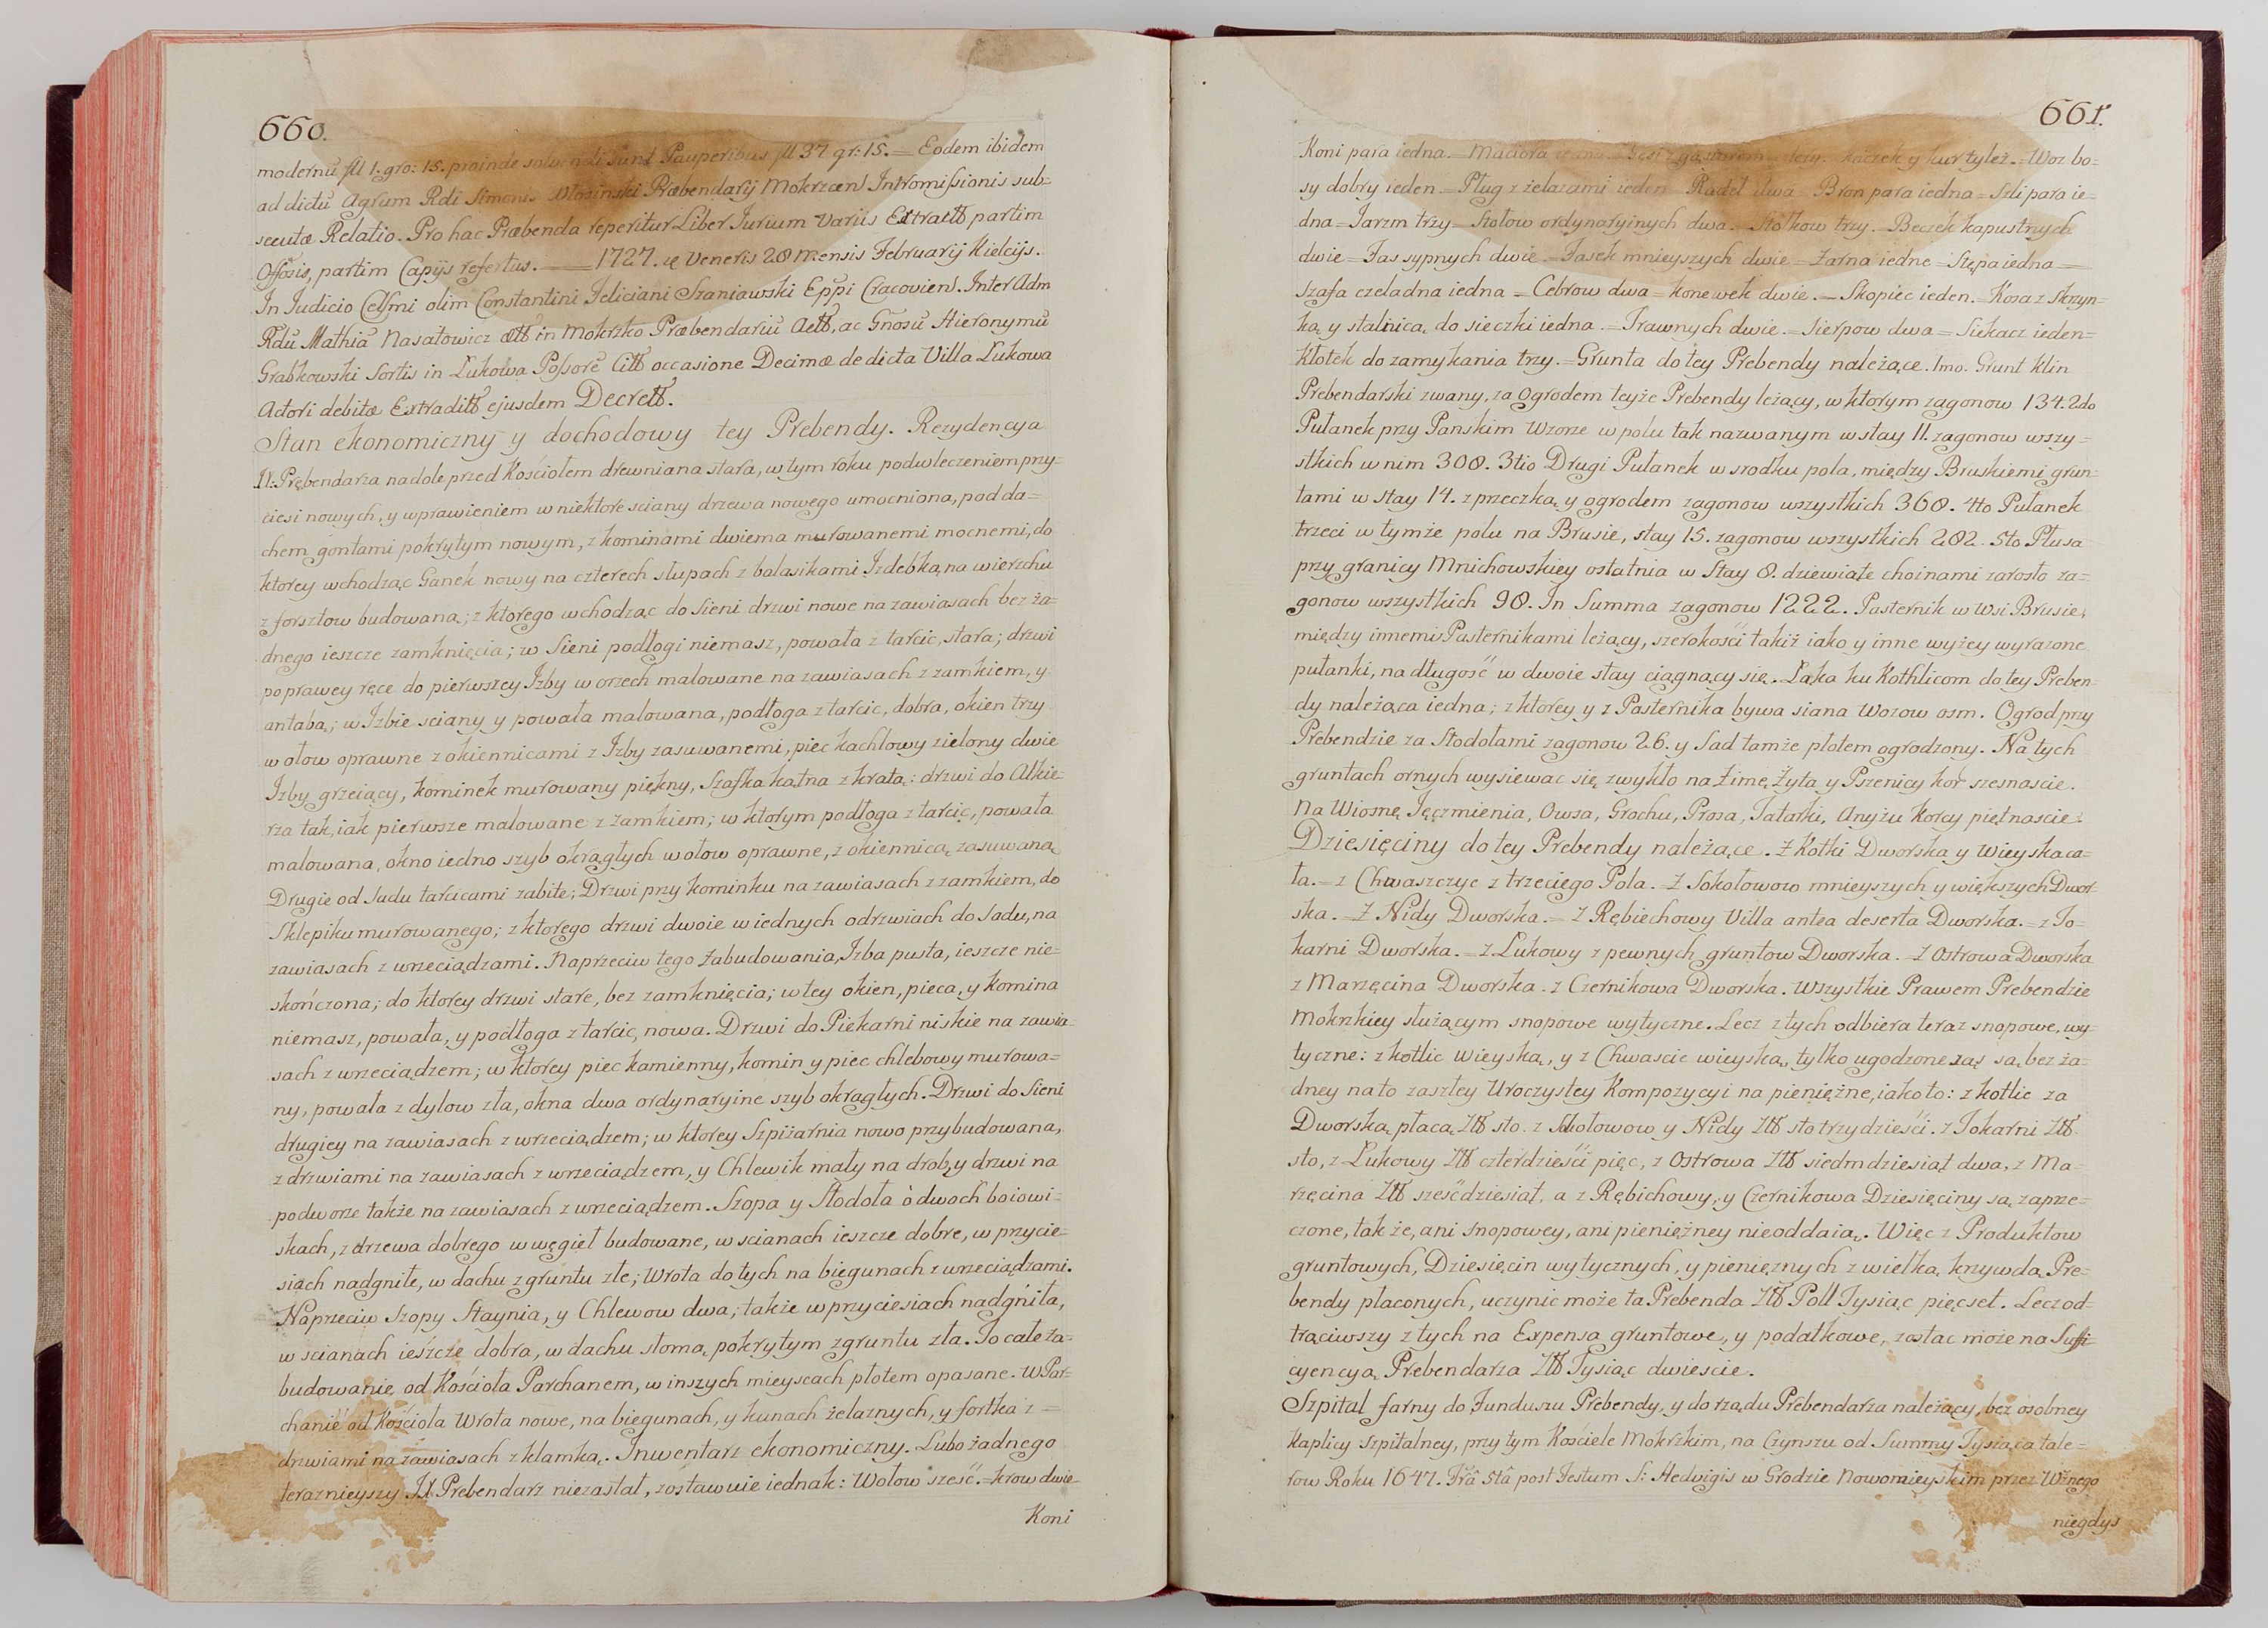 660.
modernũ fll 1. gro: 15. proinde solvendi sunt Pauperibus fll 37 gr: 15. = Eodem ibidem
ad dictũ Agrum Rdi Simonis Præbendarij Mokrzcen̄ Intromissionis sub=
secutæ Relatio. Pro hac Præbenda reperitur Liber Jurium variis Extractt̃ partim
Offosis, partim Copijs refertus. — 1727. Veneris 28 mensis Februarij Kielcijs.
In Judicio Celsmi olim Constantini Feliciani Szaniawski Eppi Cracovien̄. Inter Adm
Rdũ Mathiã Nasatowicz in Mokrzko Præbendariũ Actt̃, ac Gnosũ Hieronymũ
Grabkowski Sortis in Lukowa Possorẽ Citt̃ occasione Decimæ de dicta Villa Lukowa
Actori debitæ Extraditt̃ ejusdem Decrett̃.
Stan ekonomiczny y dochodowy tey Prebendy. Rezydencya
JX: Prębendarza na dole przed Kościołem drewniana stara, w tym roku podwleczeniem przy=
ciesi nowych, y wprawieniem w niektore sciany drzewa nowego umocniona, pod da=
chem gontami pokrytym nowym, z kominami dwiema murowanemi mocnemi, do
ktorey wchodząc Ganek nowy na czterech słupach z balasikami Izdebką na wierzchu
z forsztow budowaną; z ktorego wchodząc do Sieni drzwi nowe na zawiasach bez ża=
dnego ieszcze zamknięcia; w Sieni podłogi niemasz, powała z tarcic, stara; drzwi
po prawey ręce do pierwszey Izby w orzech malowane na zawiasach z zamkiem, y
antabą; w Izbie sciany y powała malowana, podłoga z tarcic, dobra, okien trzy
w ołow oprawne z okiennicami z Izby zasuwanemi, piec kachlowy zielony dwie
Izby grzeiący, kominek murowany piękny, Szafka kątna z kratą: drzwi do Alkie=
rza tak, iak pierwsze malowane z zamkiem; w ktorym podłoga z tarcic, powała
malowana, okno iedno szyb okrągłych w ołow oprawne, z okiennicą zasuwaną
Drugie od Sadu tarcicami zabite; Drzwi przy kominku na zawiasach z zamkiem, do
Sklepiku murowanego; z ktorego drzwi dwoie w iednych odrzwiach do Sadu, na
zawiasach z wrzeciądzami. Naprzeciw tego Zabudowania, Izba pusta, ieszcze nie=
skończona; do ktorey drzwi stare, bez zamknięcia; w tey okien, pieca, y Komina
niemasz, powała, y podłoga z tarcic, nowa. Drzwi do Piekarni niskie na zawia=
sach z wrzeciądzem; w ktorey piec kamienny, komin y piec chlebowy murowa=
ny, powała z dylow zła, okna dwa ordynaryine szyb okrągłych. Drzwi do Sieni
drugiey na zawiasach z wrzeciądzem; w ktorey Szpiżarnia nowo przybudowana,
z drzwiami na zawiasach z wrzeciądzem, y Chlewik mały na drob, y drzwi na
podworze także na zawiasach z wrzeciądzem. Szopa y Stodoła ò dwoch boiowi=
skach, z drzewa dobrego w węgieł budowane, w scianach ieszcze dobre, w przycie=
siach nadgniłe, w dachu z gruntu złe; Wrota do tych na biegunach z wrzeciądzami.
Naprzeciw Szopy Staynia, y Chlewow dwa; także w przyciesiach nadgniła,
w scianach ieszcze dobra, w dachu słomą pokrytym z gruntu zła. To całe Za=
budowanie od Kościoła Parchanem, w inszych mieyscach płotem opasane. W Par=
chanie od Kościoła Wrota nowe, na biegunach, y kunach żelaznych, y fortka z =
drzwiami na zawiasach z klamką. Inwentarz ekonomiczny. Lubo żadnego
teraznieyszy JX Prebendarz niezastał, zostawuie iednak: Wołow sześć. = krow dwie
Koni
661.
Koni para iedna. = Maciora iedna. = Gęsi z gąsiorem trzy. Kaczek y kur tyleż. = Woz bo=
sy dobry ieden. = Pług z żelazami ieden = Radeł dwa = Bron para iedna = Szli para ie=
dna = Jarzm trzy = Stołow ordynaryinych dwa. = Stołkow trzy. = Beczek kapustnych
dwie = Fas sypnych dwie. = Fasek mnieyszych dwie = Żarna iedne = Stępa iedna =
Szafa czeladna iedna = Cebrow dwa = konewek dwie. = Skopiec ieden. = Kosa z Skrzyn=
ką y stalnicą do sieczki iedna. = Trawnych dwie. = Sierpow dwa = Siekacz ieden=
Kłotek do zamykania trzy. = Grunta do tey Prebendy należące. 1mo. Grunt Klin
Prebendarski zwany, za Ogrodem teyże Prebendy leżący, w ktorym zagonow 134. 2do
Pułanek przy Panskim Wzorze w polu tak nazwanym w stay 11. zagonow wszy=
stkich w nim 308. 3tio Drugi Pułanek w srodku pola, między Bruskiemi grun=
tami w stay 14. z przeczką y ogrodem zagonow wszystkich 360. 4to Pułanek
trzeci w tymże polu na Brusie, stay 15. zagonow wszystkich 282. 5to Płusa
przy granicy Mnichowskiey ostatnia w Stay 8. dziewiąte choinami zarosło za=
gonow wszystkich 98. In Summa zagonow 1222. Pasternik w Wsi Brusie,
między innemi Pasternikami leżący, szerokości takiż iako y inne wyżey wyrazone
pułanki, na długość w dwoie stay ciągnący się. Łąka ku Kothlicom do tey Preben=
dy należąca iedna; z ktorey y z Pasternika bywa siana Wozow osm. Ogrod przy
Prebendzie za Stodołami zagonow 26. y Sad tamże płotem ogrodzony. Na tych
gruntach ornych wysiewac się zwykło na Zimę Żyta y Pszenicy kor szesnascie.
Na Wiosnę Jęczmienia, Owsa, Grochu, Prosa, Tatarki, Anyżu Korcy piętnascie.
Dziesięciny do tey Prebendy należące. Z Kotki Dworska y Wieyska ca=
ła. = z Chwaszczyc z trzeciego Pola. = Z Sokołowow mnieyszych y większych Dwor=
ska. = Z Nidy Dworska. = Z Rębiechowy Villa antea deserta Dworska. = z To=
karni Dworska. = z Lukowy z pewnych gruntow Dworska. = Z Ostrowa Dworska
z Marzęcina Dworska. z Czernikowa Dworska. Wszystkie Prawem Prebendzie
Mokrzkiey służącym snopowe wytyczne. Lecz z tych odbiera teraz snopowe, wy=
tyczne: z kotlic Wieyską, y z Chwascic wieyską, tylko ugodzone zaś są, bez ża=
dney na to zaszłey Uroczystey Kompozycyi na pieniężne, iako to: z kotlic za
Dworską płacą Złt̃ sto. z Sokołowow y Nidy Złt̃ sto trzydzieści. z Tokarni Złt̃
sto, z Lukowy Złt̃ czterdzieści pięc, z Ostrowa Złt̃ siedmdziesiąt dwa, z Ma=
rzęcina Złt̃ sześćdziesiąt, a z Rębichowy, y Czernikowa Dziesięciny są zaprze=
czone, tak że, ani snopowey, ani pieniężney nieoddaią. Więc z Produktow
gruntowych, Dziesięcin wytycznych, y pieniężnych z wielką krzywdą Pre=
bendy płaconych, uczynic może ta Prebenda Złt̃ Poll Tysiąc pięcset. Lecz od=
trąciwszy z tych na Expensa gruntowe, y podatkowe, zostac może na Suffi=
cyencyą Prebendarza Złt̃ Tysiąc dwiescie.
Szpital farny do Funduszu Prebendy, y do rządu Prebendarza należący, bez osobney
Kaplicy Szpitalney, przy tym Kościele Mokrzkim, na Czynszu od Summy Tysiąca tale=
row Roku 1647. Frã Stã post Festum S: Hedwigis w Grodzie Nowomieyskim przez Wżnego
niegdys